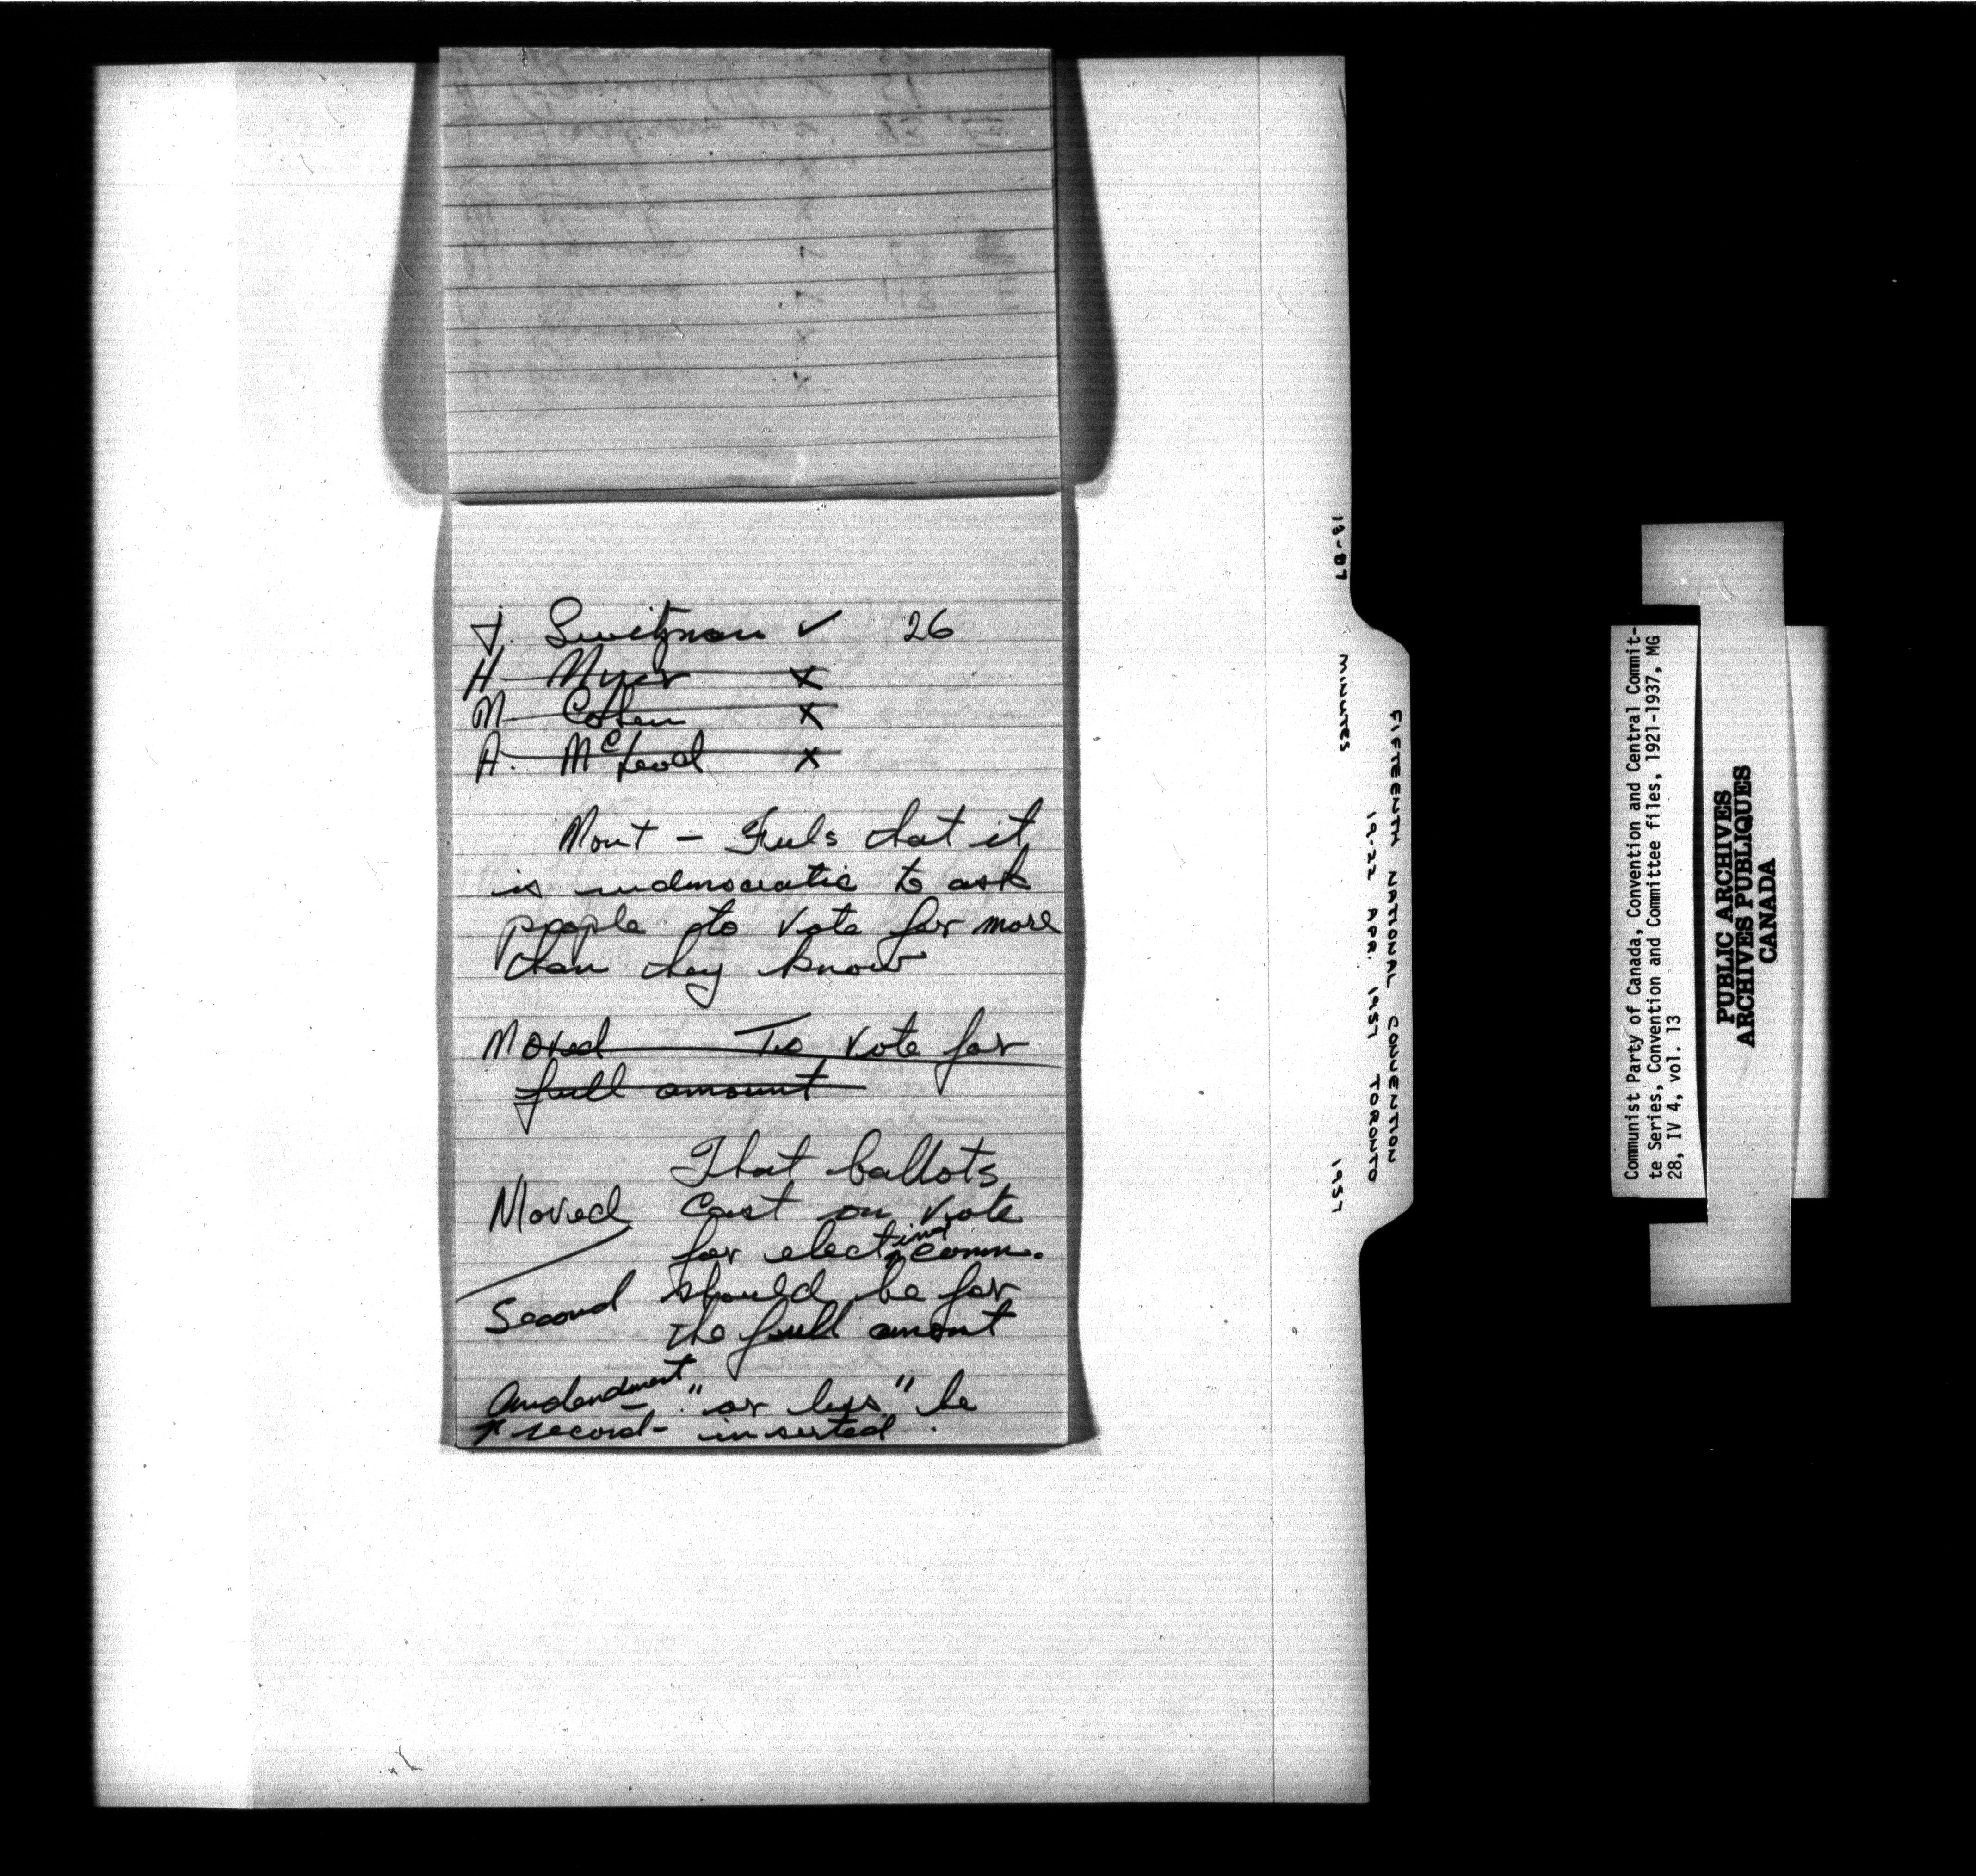 J. Switzman ✓ 26
H. Myer x
M. Cohen x
A. McLeod x
Mont - Feels that it
is undemocratic to ask
people to vote for more
than they know
Moved To vote for
full amount
That ballots
Moved cast on vote
for electing comm.
Second should be for
the full amont
Amdendment - "or less" be
second - inserted.
13-07
MINUTES
1957
FIFTEENTH NATIONAL CONVENTION
19-22 APR. 1957 TORONTO
Communist Party of Canada, Convention and Central Commit-
te Series, Convention and Committee files, 1921-1937, MG
28, IV 4, vol. 13
PUBLIC ARCHIVES
ARCHIVES PUBLIQUES
CANADA